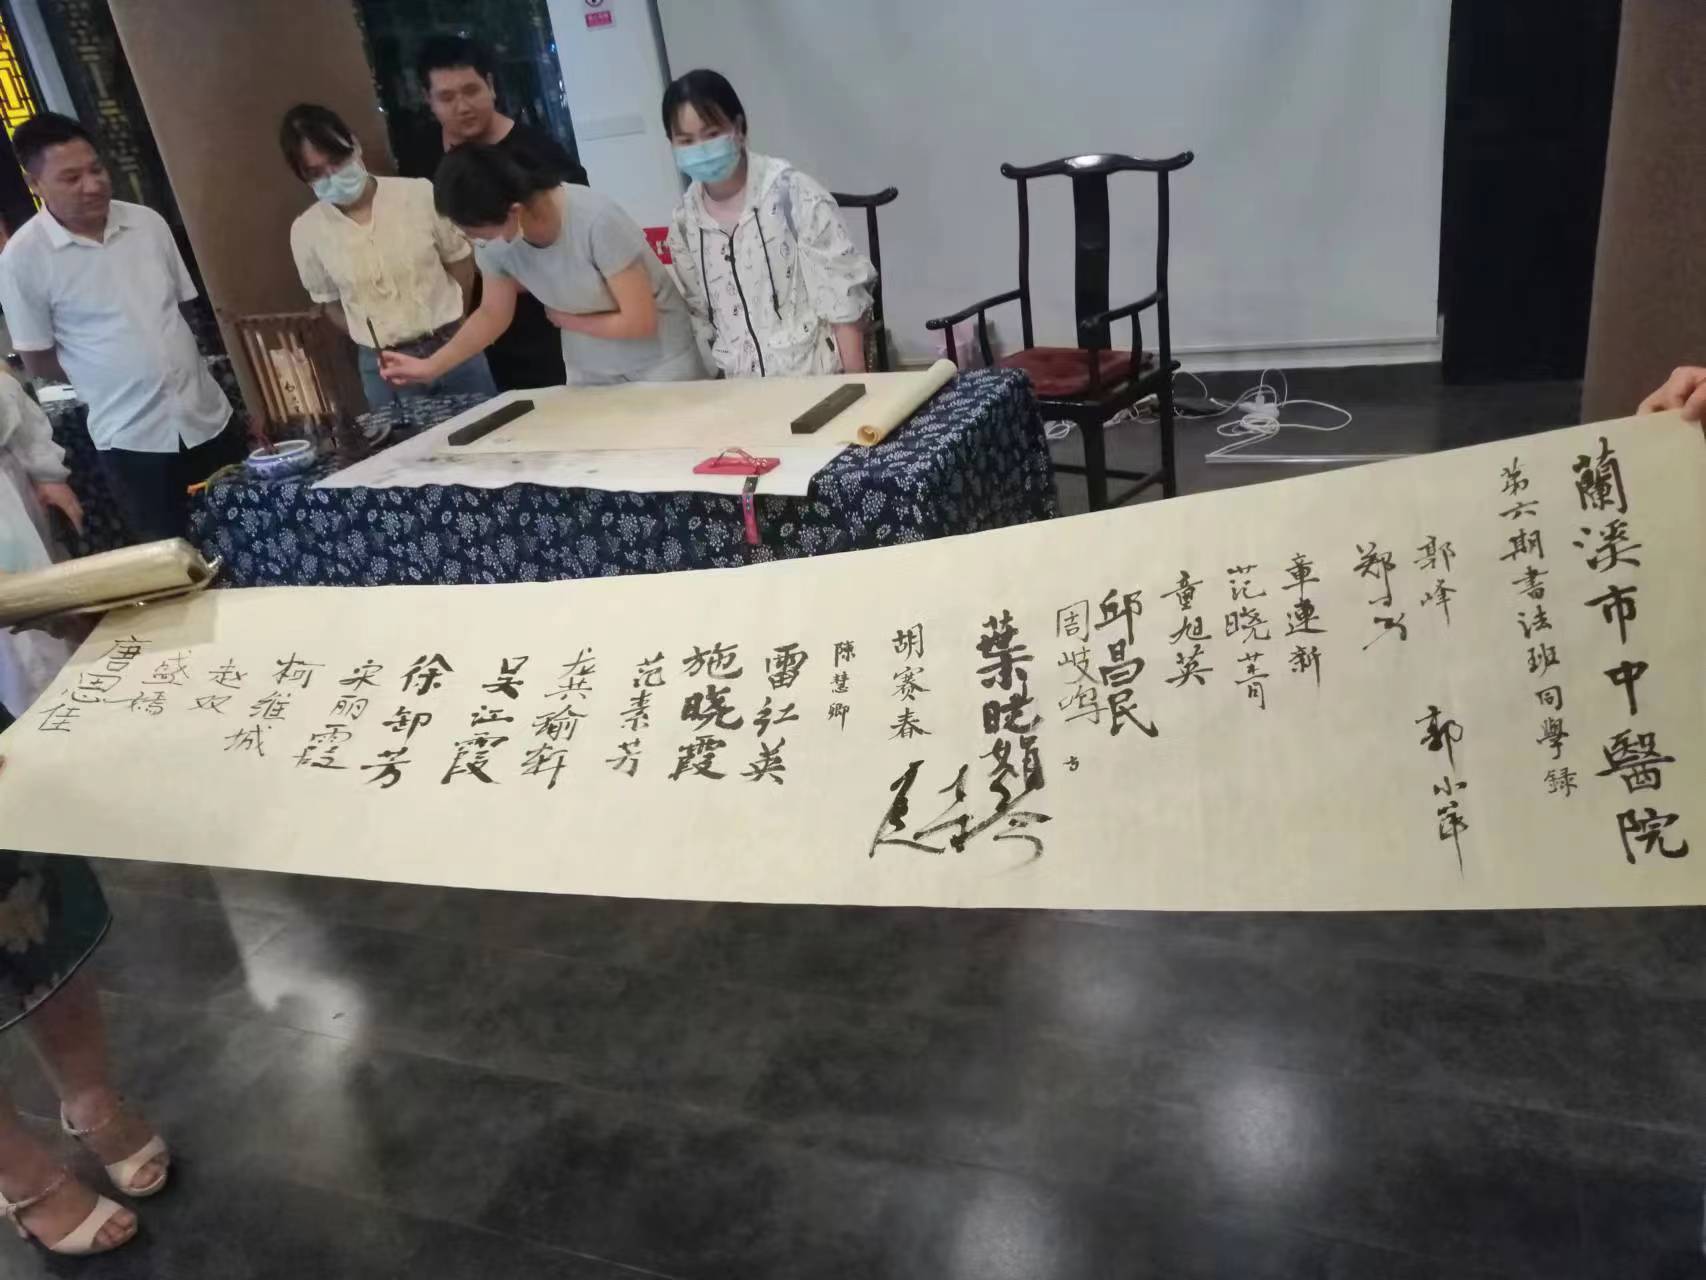 蘭溪市中醫院
第六期书法班同學録
郭峰
郭小華
章連新
范晓菁
童旭英
邱昌民
周岐鸣
葉晓娟
胡赛春
陈慧卿
雷红英
施晓霞
范素芳
龚瑜轩
吴江霞
徐卸芳
宋丽霞
柯維城
赵双
盛嬌
唐思佳